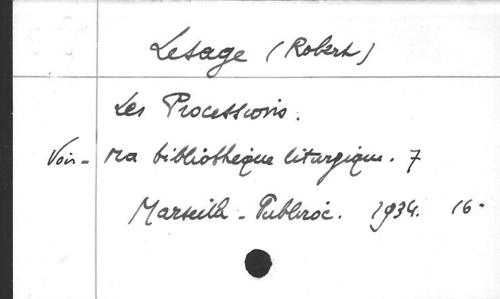 Lesage (Robert)
Les Processions.
Voir - Ma bibliothèque liturgique. 7
Marseille - Publiroc. 1934. 16-